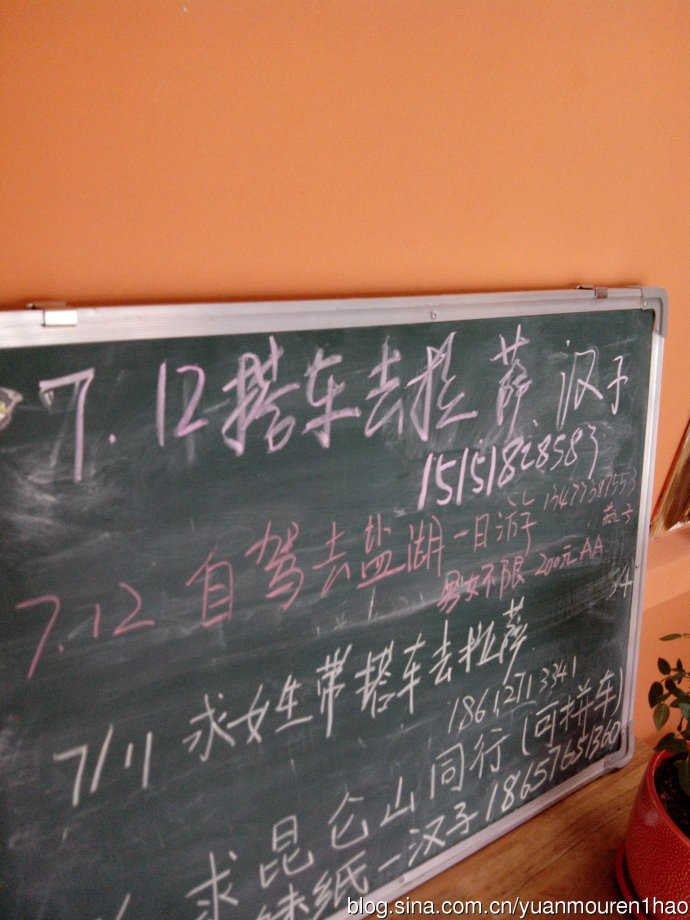 7.12搭车去拉萨 汉子
15151828583
7.12 自驾去盐湖一日游
男女不限 200元AA
7/11 求女生带搭车去拉萨
18612713341
求昆仑山同行(可拼车)
妹纸一汉子 18657651360
blog.sina.com.cn/yuanmouren1hao